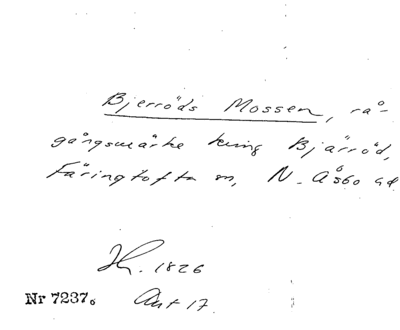 Bjerröds Mossen, rå-
gångsmärke kring Bjärröd,
Färingtofta sn, N. Åsbo hd
1826
Nr 7237. Akt 17.